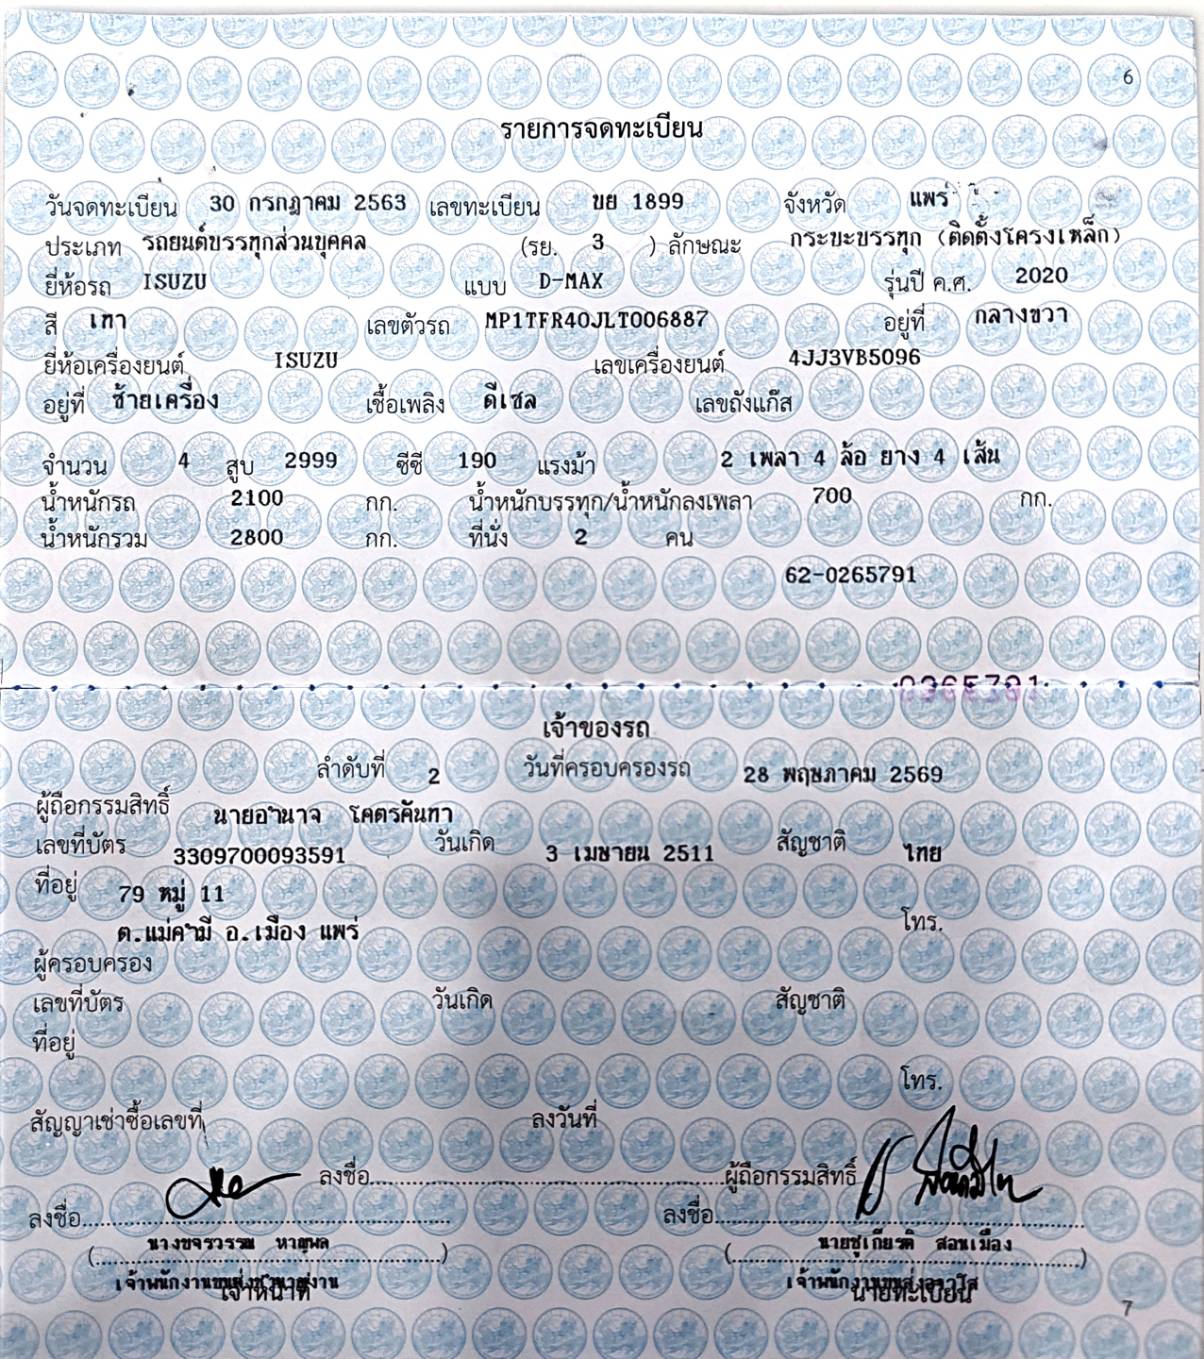 6
รายการจดทะเบียน
วันจดทะเบียน 30 กรกฎาคม 2563 เลขทะเบียน ขย 1899 จังหวัด แพร่
ประเภท รถยนต์บรรทุกส่วนบุคคล (รย. 3 ) ลักษณะ กระบะบรรทุก (ติดตั้งโครงเหล็ก)
ยี่ห้อรถ ISUZU แบบ D-MAX รุ่นปี ค.ศ. 2020
สี เทา เลขตัวรถ MP1TFR40JLT006887 อยู่ที่ กลางขวา
ยี่ห้อเครื่องยนต์ ISUZU เลขเครื่องยนต์ 4JJ3VB5096
อยู่ที่ ซ้ายเครื่อง เชื้อเพลิง ดีเซล เลขถังแก๊ส
จำนวน 4 สูบ 2999 ซีซี 190 แรงม้า 2 เพลา 4 ล้อ ยาง 4 เส้น
น้ำหนักรถ 2100 กก. น้ำหนักบรรทุก/น้ำหนักลงเพลา 700 กก.
น้ำหนักรวม 2800 กก. ที่นั่ง 2 คน
62-0265791
0265791
เจ้าของรถ
ลำดับที่ 2 วันที่ครอบครองรถ 28 พฤษภาคม 2569
ผู้ถือกรรมสิทธิ์ นายอำนาจ โคตรคันทา
เลขที่บัตร 3309700093591 วันเกิด 3 เมษายน 2511 สัญชาติ ไทย
ที่อยู่ 79 หมู่ 11
ต.แม่คำมี อ.เมือง แพร่ โทร.
ผู้ครอบครอง
เลขที่บัตร วันเกิด สัญชาติ
ที่อยู่
โทร.
สัญญาเช่าซื้อเลขที่ ลงวันที่
ลงชื่อ ผู้ถือกรรมสิทธิ์
ลงชื่อ ลงชื่อ
(นางขจรวรรณ หาญพล) (นายชูเกียรติ สอนเมือง)
เจ้าพนักงานขนส่งชำนาญงาน เจ้าพนักงานขนส่งอาวุโส
เจ้าหน้าที่ นายทะเบียน
7